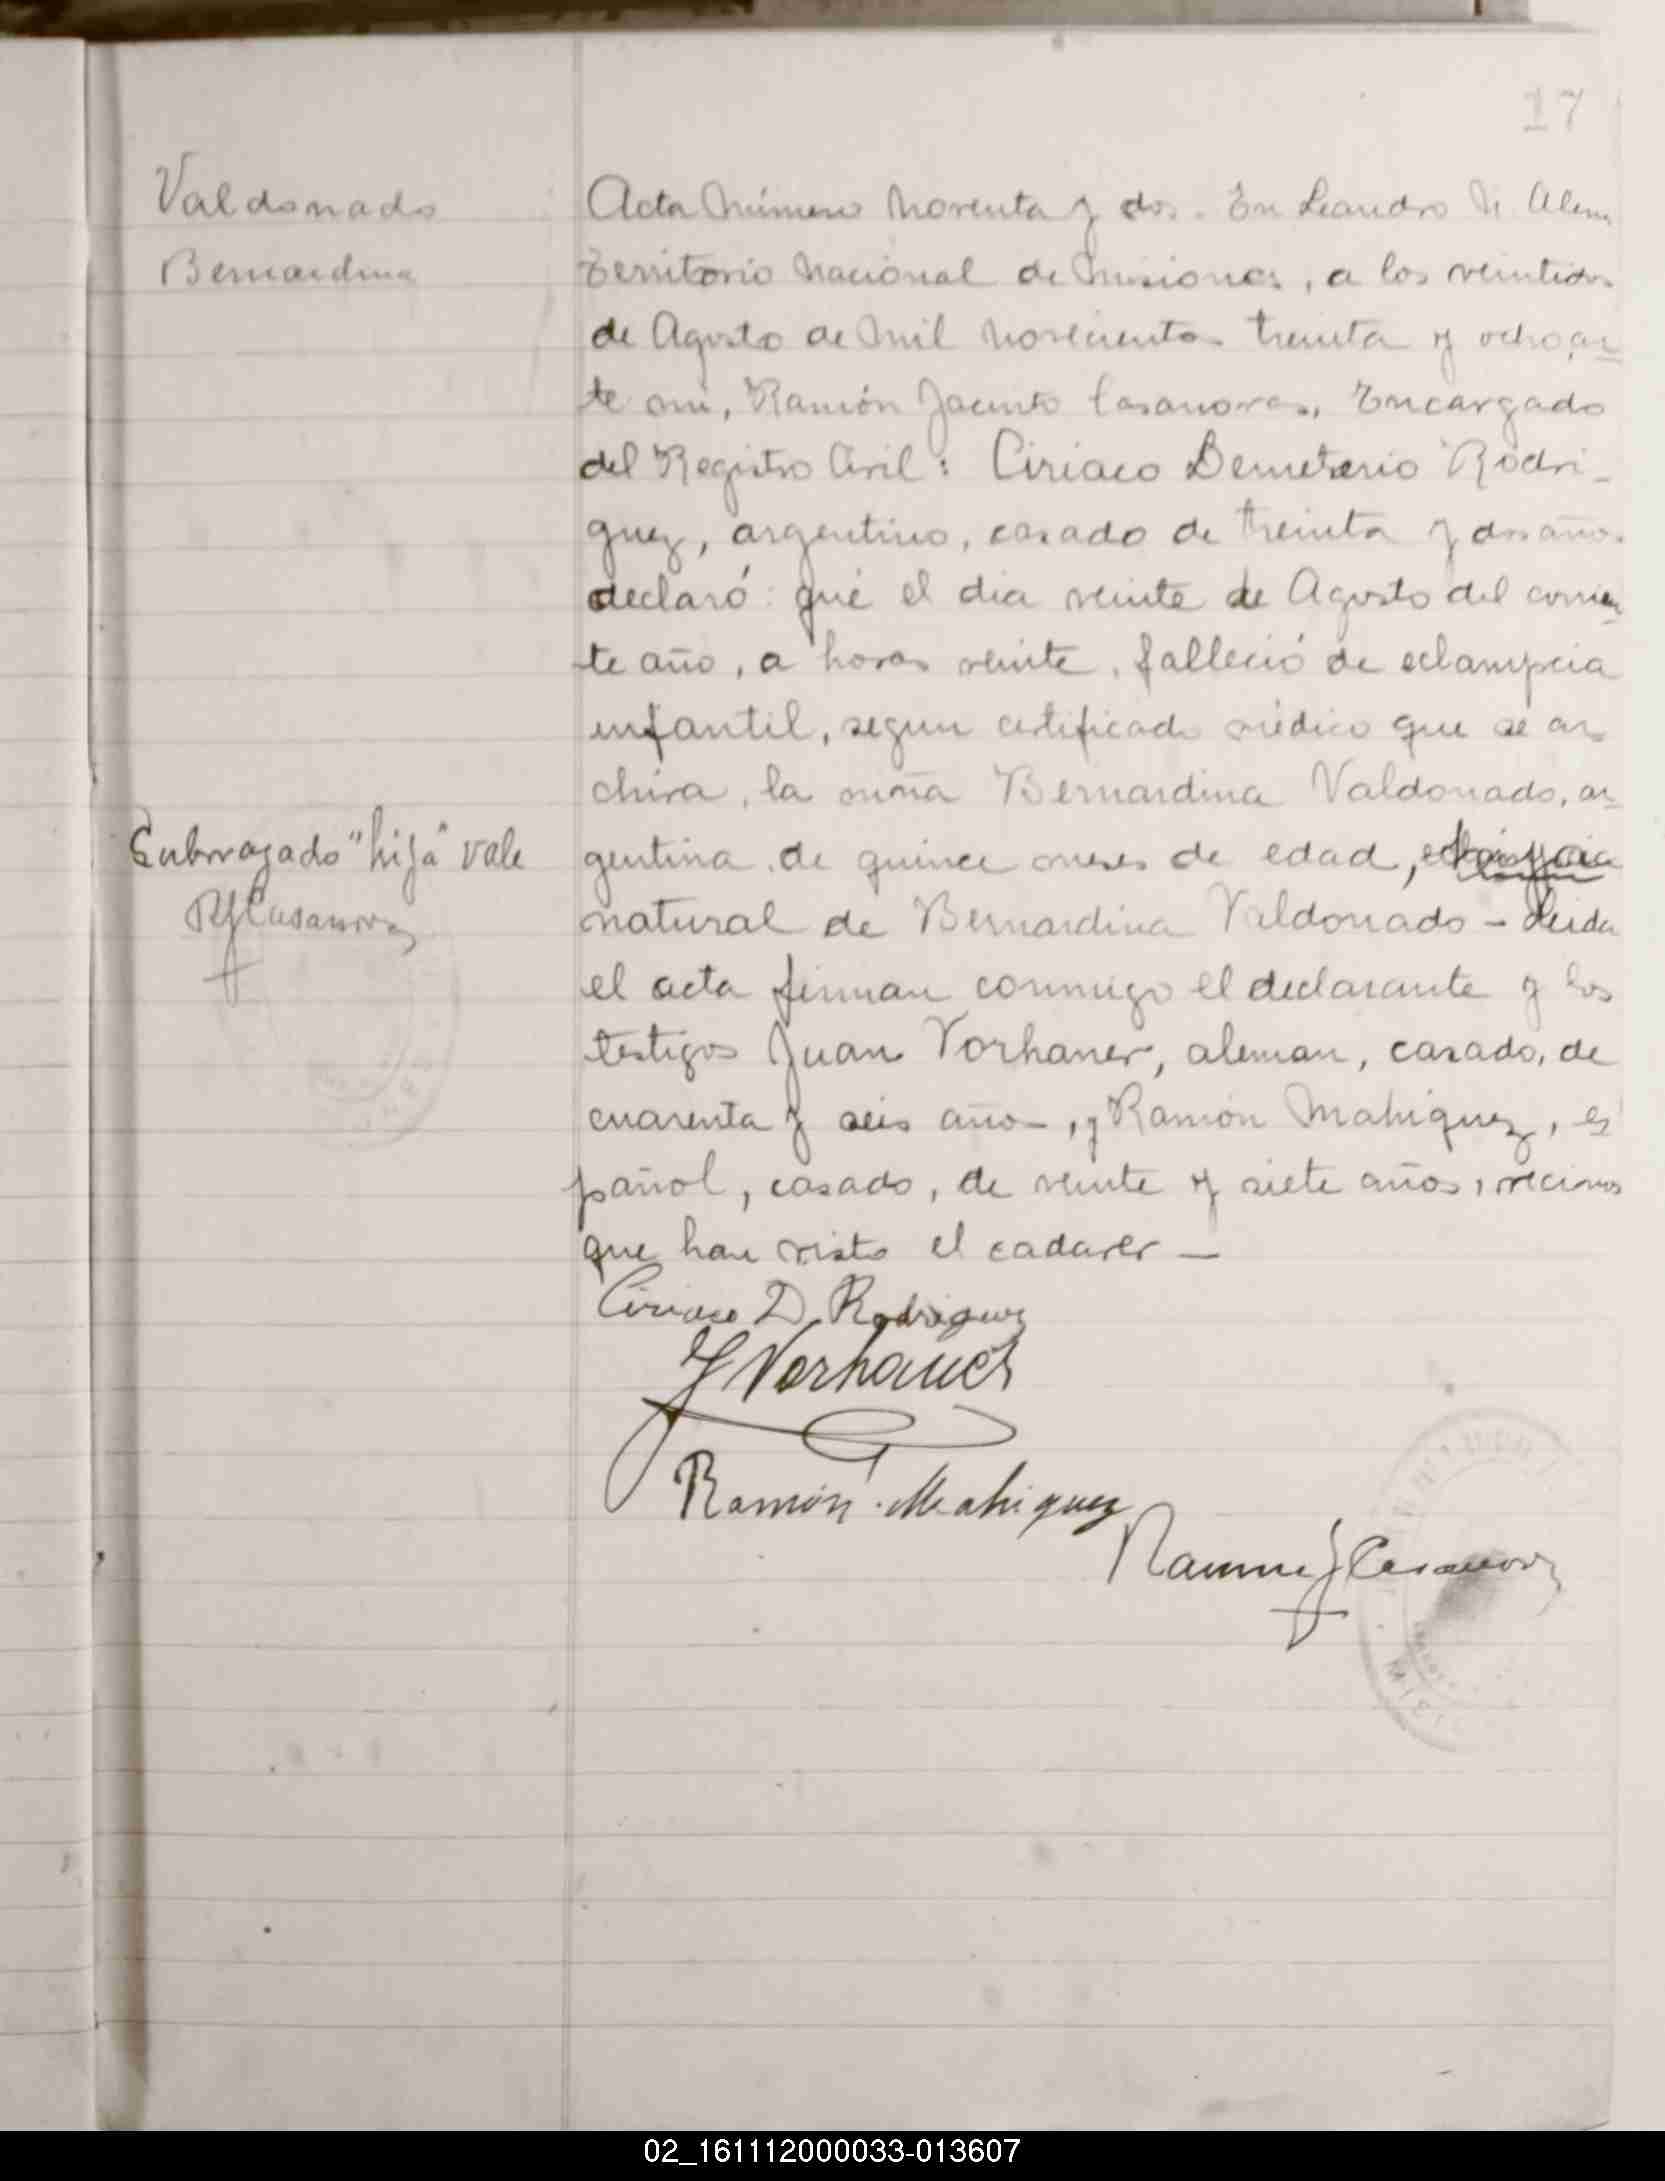 17
Valdonado
Bernardina
Acta Número Noventa y dos. En Leandro N. Alem
Territorio Nacional de Misiones, a los veintidos
de Agosto de Mil Novecientos treinta y ocho, an
te mi, Ramón Jacinto Casanovas, Encargado
del Registro Civil: Ciriaco Demeterio Rodri-
guez, argentino, casado de treinta y dos años
declaró: que el dia veinte de Agosto del corrien
te año, a horas veinte, falleció de eclampcia
infantil, segun certificado médico que se ar
chiva, la niña Bernardina Valdonado, ar
gentina, de quince meses de edad,
natural de Bernardina Valdonado - Leida
el acta firman conmigo el declarante y los
testigos Juan Vorhaner, aleman, casado, de
cuarenta y seis años, y Ramón Mahiquez, es
pañol, casado, de veinte y siete años, vecinos
que han visto el cadaver -
Subrrayado "hija" vale
RJCasanovas
Ciriaco D. Rodriguez
J Vorhauer
Ramón Mahiquez
Ramon J Casanovas
02_161112000033-013607